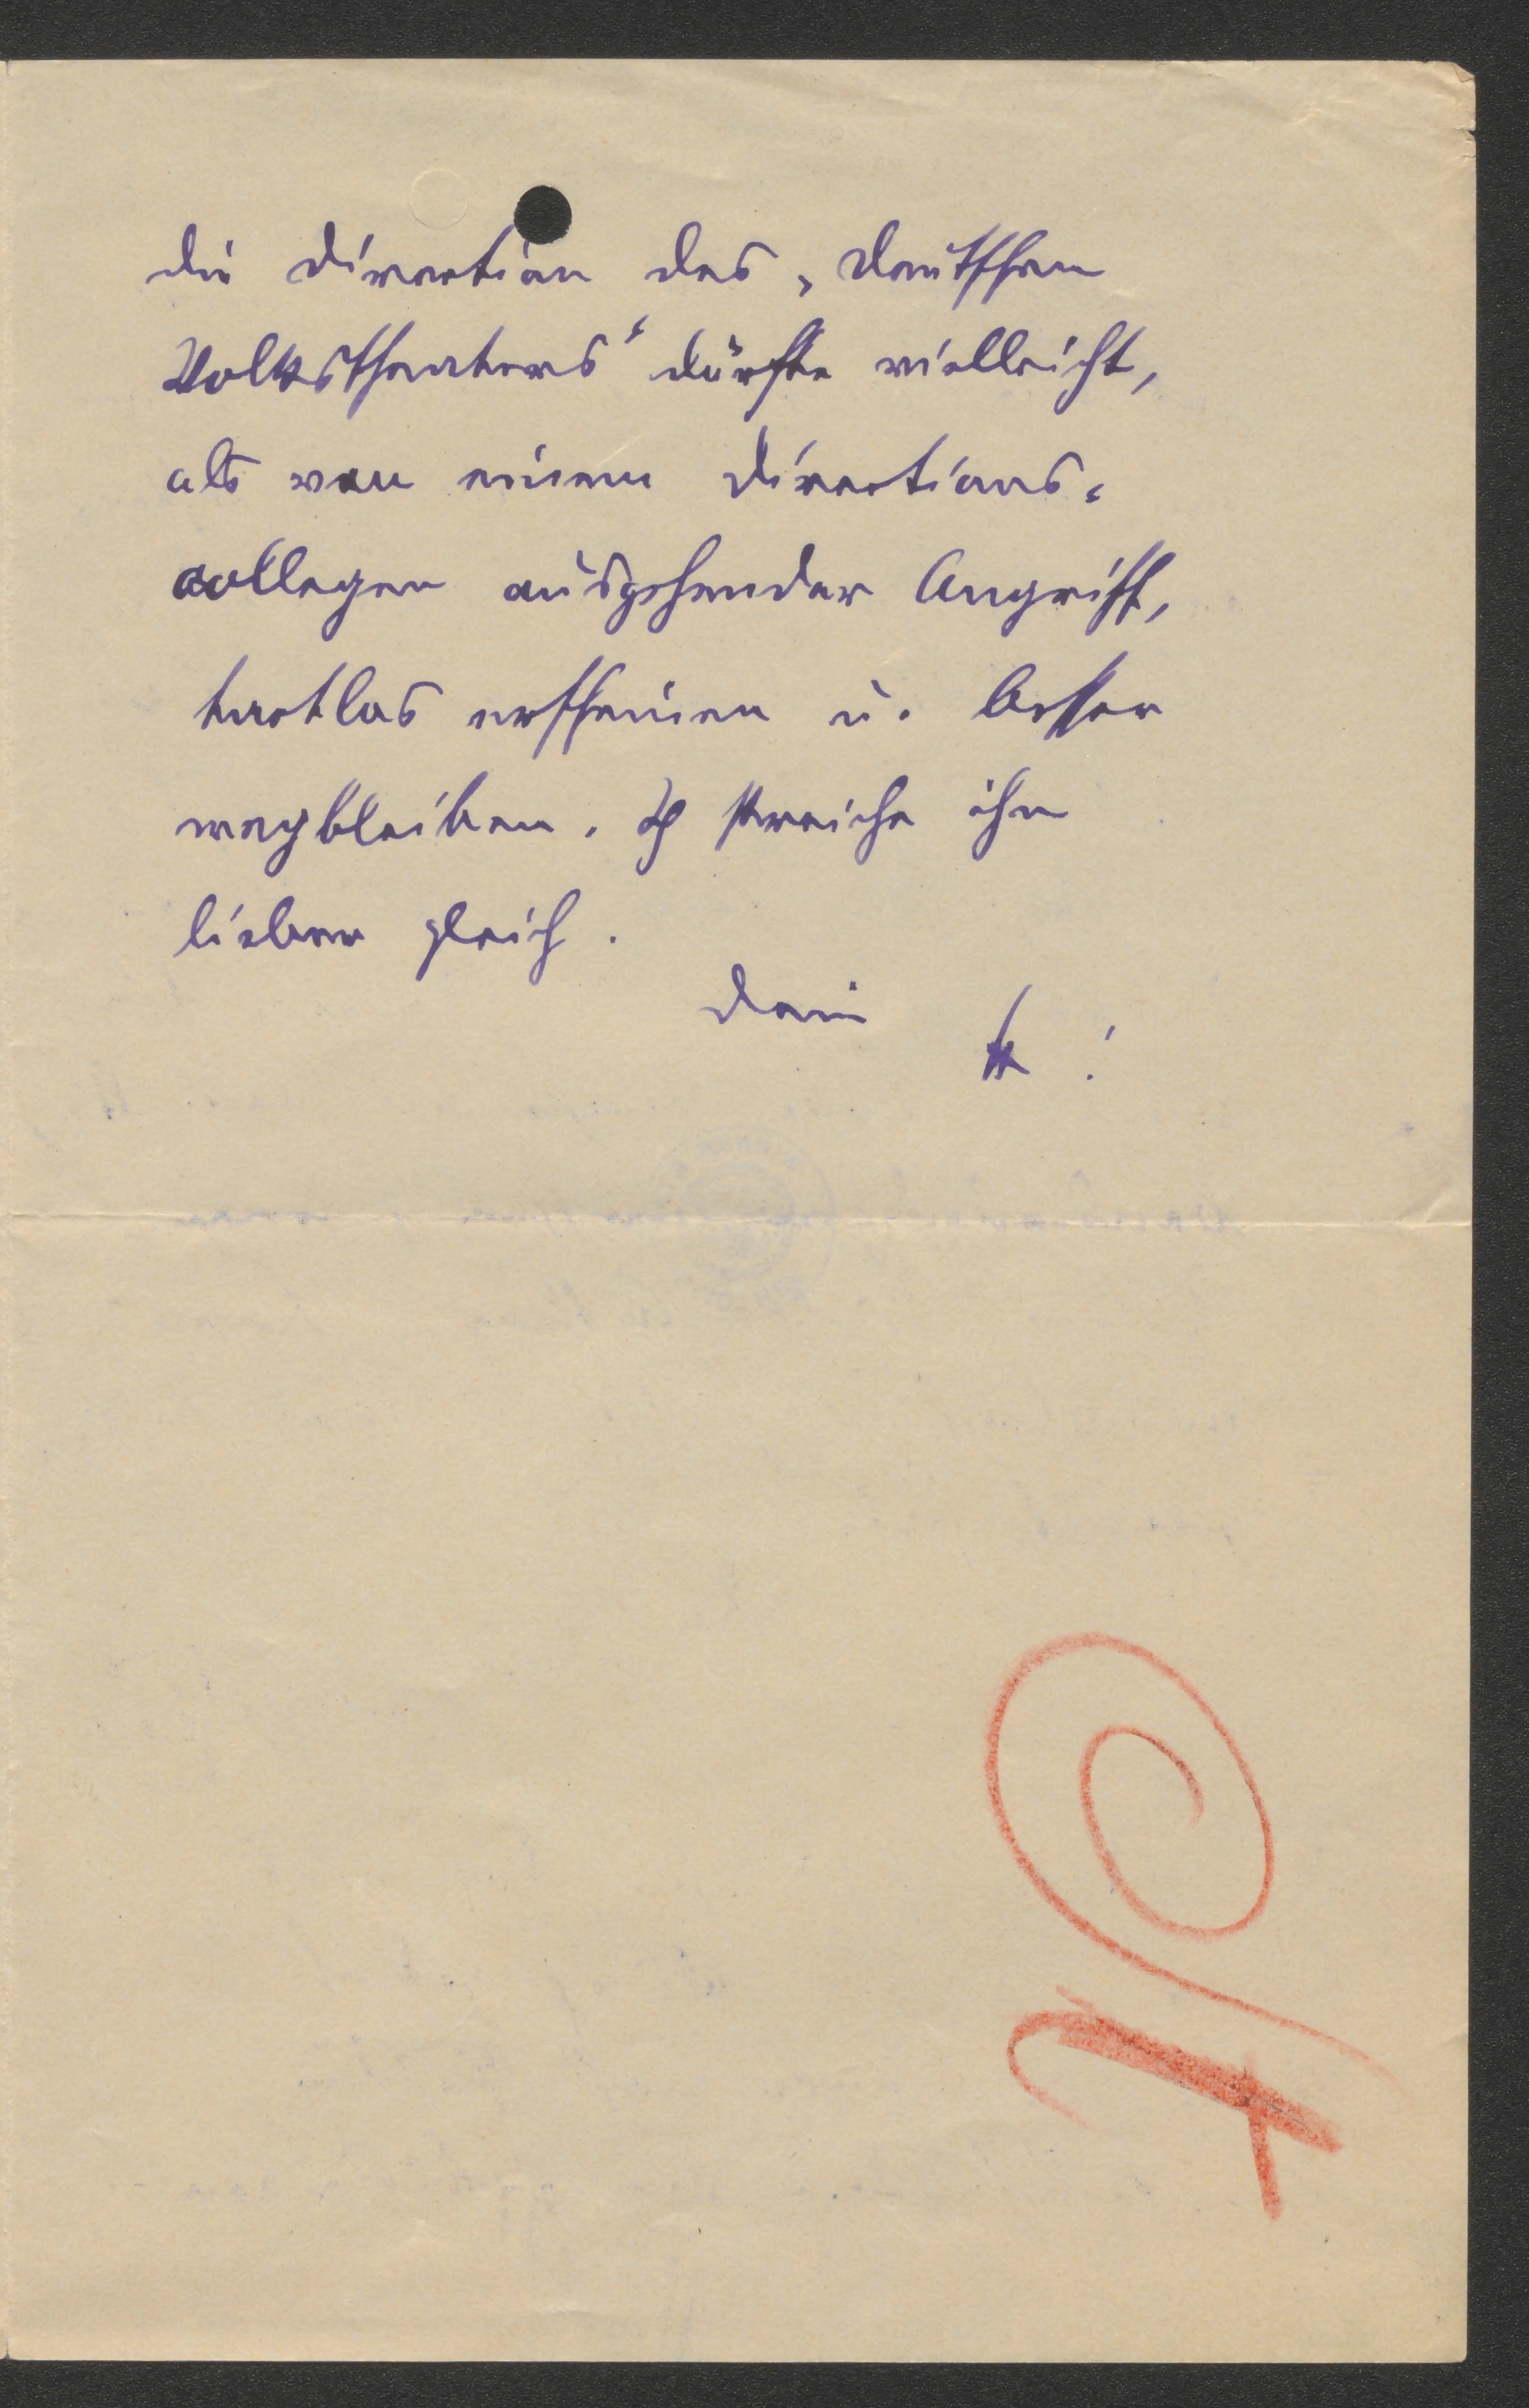 die Direction des „Deutschen
Volkstheaters“ dürfte vielleicht,
als von einem Directions-
collegen ausgehender Angriff,
tactlos erscheinen u. besser
wegbleiben. Ich streiche ihn
lieber gleich.
Dein